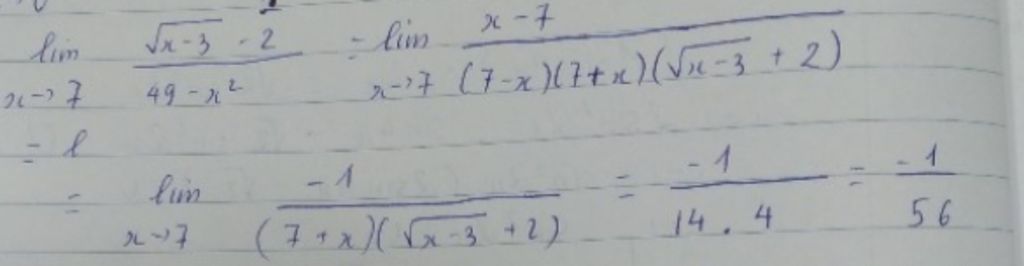 lim x→7 (√(x-3) - 2)/(49 - x²) = lim x→7 (x - 7)/((7-x)(7+x)(√(x-3) + 2))
= l
= lim x→7 -1/((7+x)(√(x-3) + 2)) = -1/(14 . 4) = -1/56